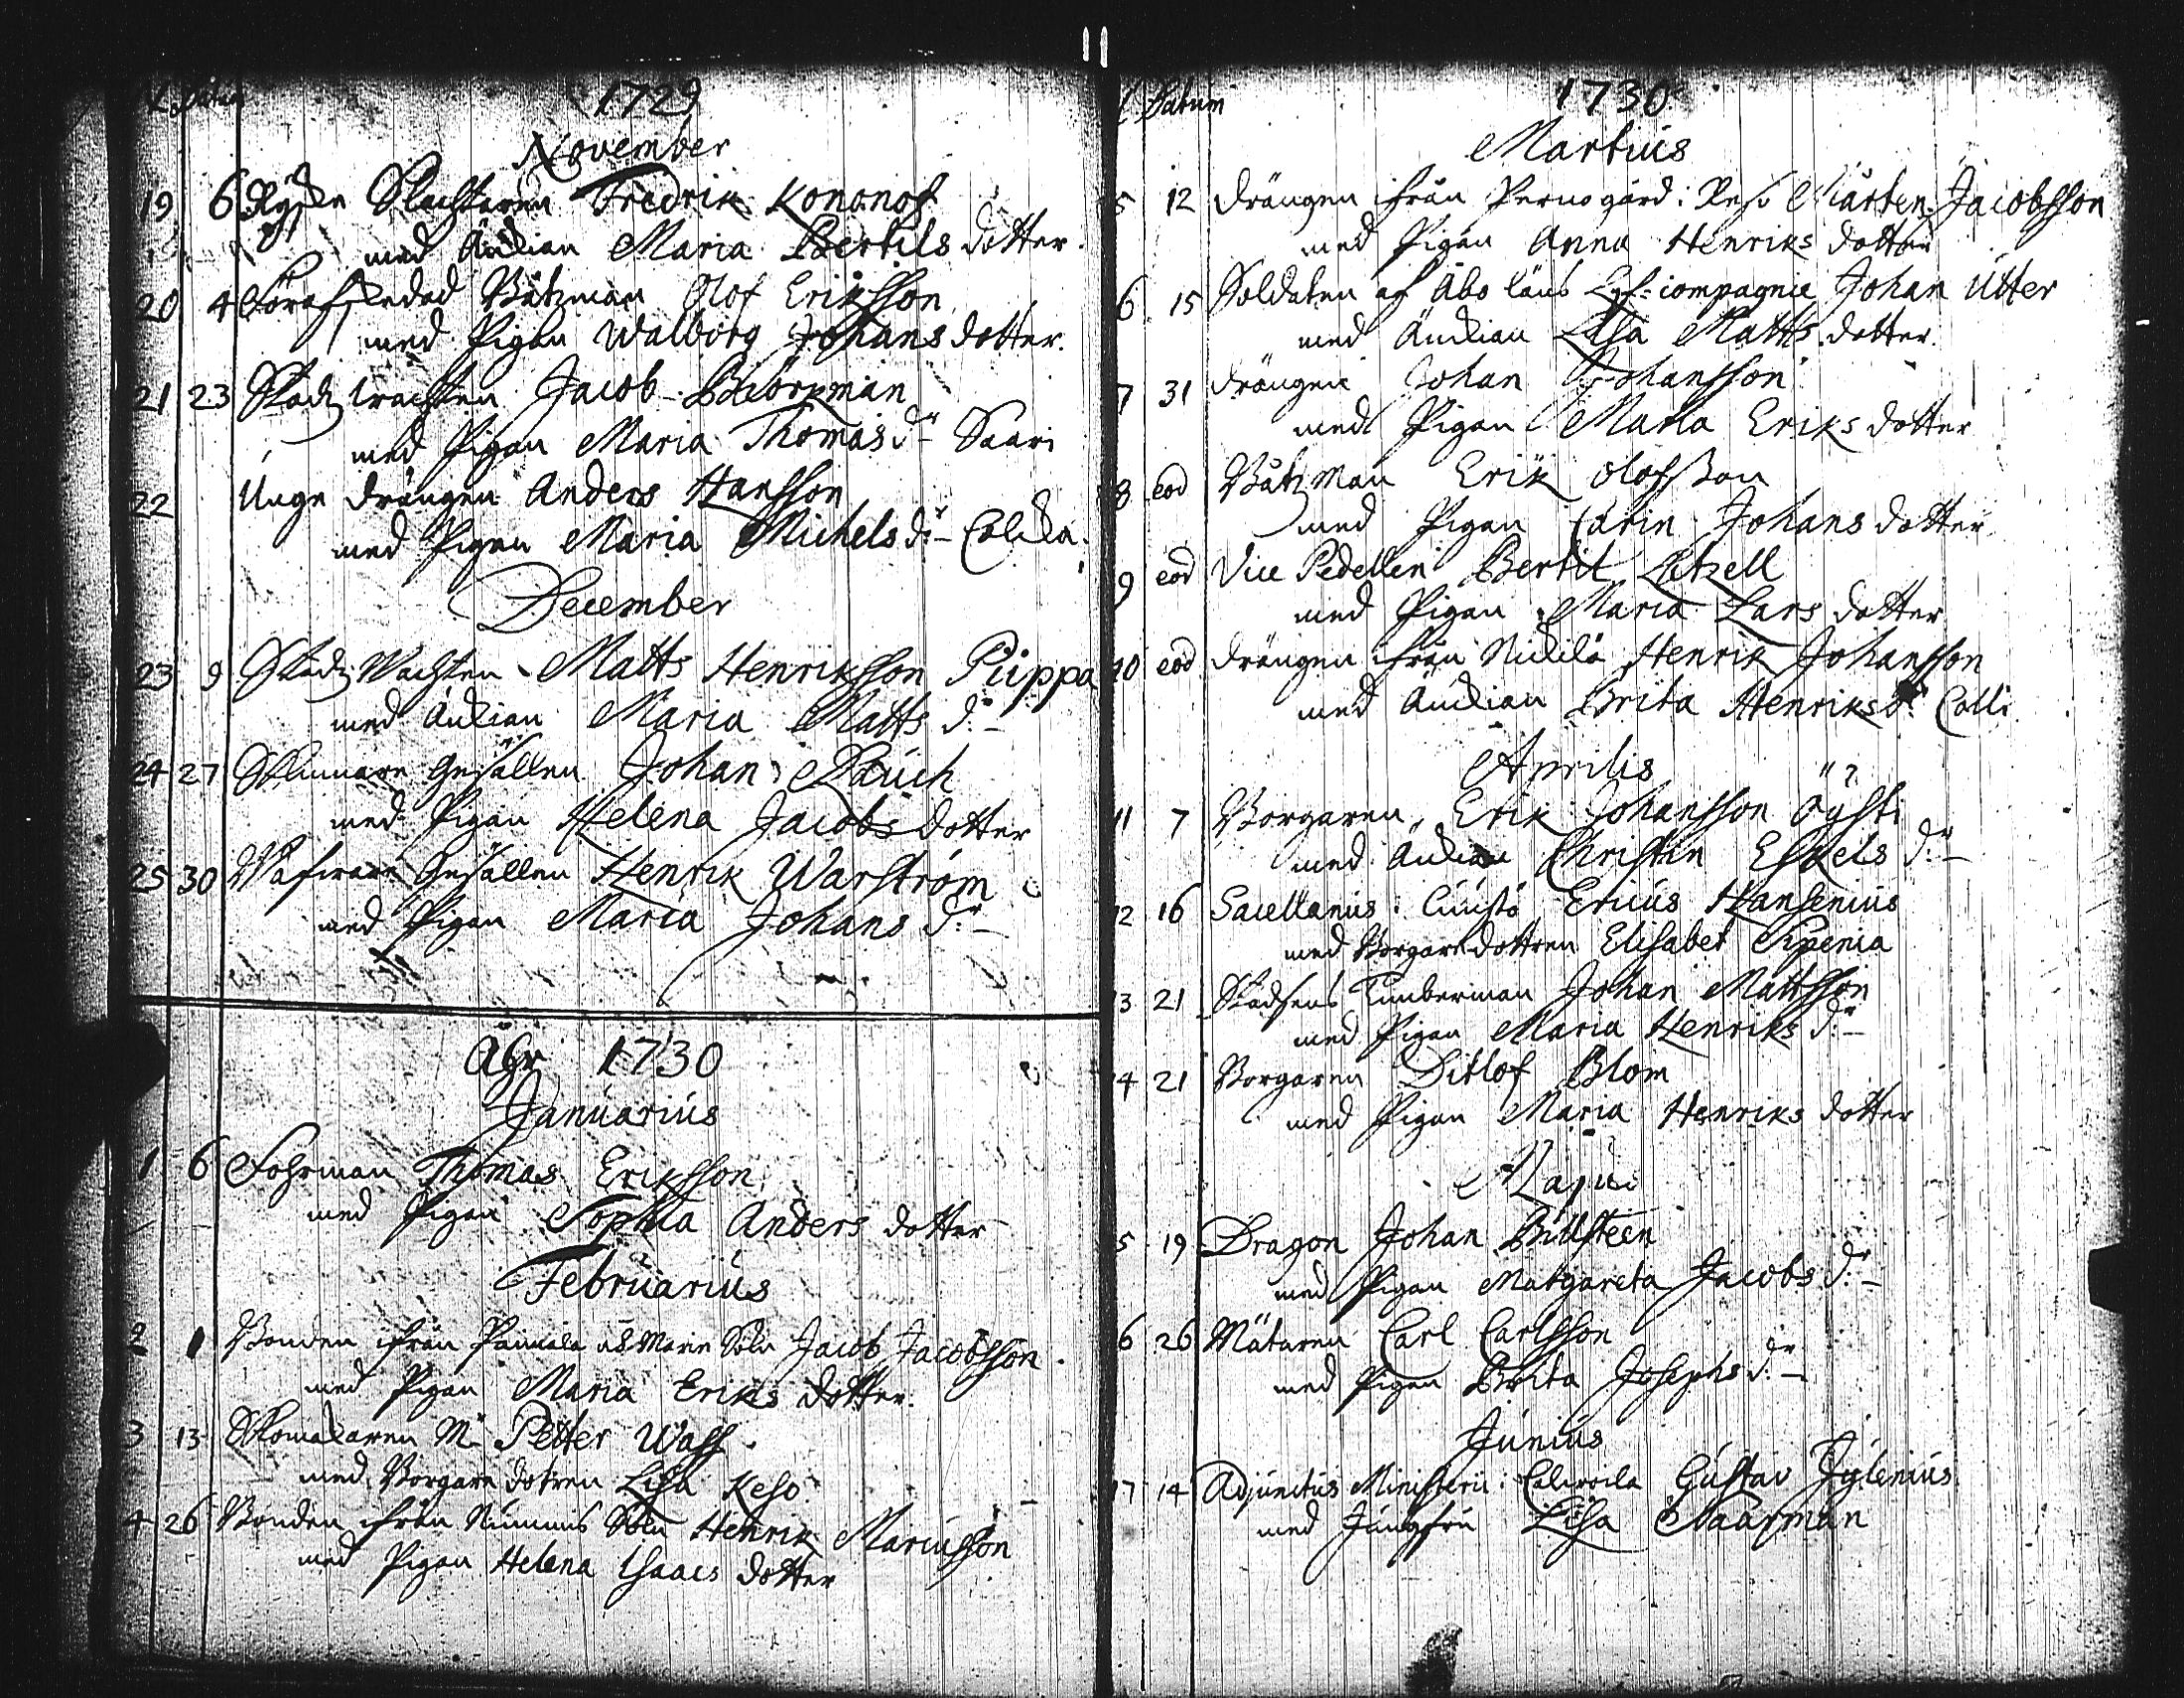 Datum
1729
November
19 6 Ryske Slachtaren Fredrik Kononof
med Änckian Maria Bertils dotter
20 4 Båtzman Olof Eriksson
med Pigan Walborg Johans dotter.
21 23 Stadz wachten Jacob Biörkman
med Pigan Maria Thomas dr Saari
22 Unge drängen Anders Hansson
med Pigan Maria Michels dr
December
23 9 Stadz Wachten Matts Henriksson Piippa
med Änckian Maria Matts dr
24 27 Skinnare Gesällen Johan
med Pigan Helena Jacobs dotter
25 30 Gesällen Henrik Warström
med Pigan Maria Johans dr
Åhr 1730
Januarius
1 6 Fohrman Thomas Eriksson
med Pigan Sophia Anders dotter
Februarius
2 1 Bonden ifrån Marie Sokn Jacob Jacobsson
med Pigan Maria Eriks dotter.
3 13 Skomakaren Mr Petter Wass
med Borgare dotren Lisa Keso
4 26 Bonden ifrån Nummis Sokn Henrik Marcusson
med Pigan Helena Isaacs dotter
Datum
1730
Martius
5 12 drängen ifrån Perno gård i Reso Mårten Jacobsson
med Pigan Anna Henriks dotter
6 15 Soldaten af Åbo läns Lif-compagnie Johan Utter
med Änckian Lisa Matts dotter.
7 31 drängen Johan Johansson
med Pigan Maria Eriks dotter
8 eod Båtzman Erik Olofsson
med Pigan Carin Johans dotter
9 eod Vice Pedellen Bertil Letzell
med Pigan Maria Lars dotter
10 eod drängen ifrån Nickilä Henrik Johansson
med Änckian Brita Henriks dr Colli
Aprilis
11 7 Borgaren Erik Johansson Öÿsti
med Änckian Christin Eskels dr
12 16 Sacellanus i Cuusto Ericus Hansenius
med Borgaredottren Elisabet Sipenia
13 21 Stadsens Timberman Johan Mattsson
med Pigan Maria Henriks dr
14 21 Borgaren Ditlof Blom
med Pigan Maria Henriks dotter
Majus
5 19 Dragon Johan Billsteen
med Pigan Margareta Jacobs dr
6 26 Mätaren Carl Carlsson
med Pigan Brita Josephs dr
Junius
17 14 Adjunctus Ministerii i Calivoila Gustav Jylenius
med Jungfru Lisa Naarman